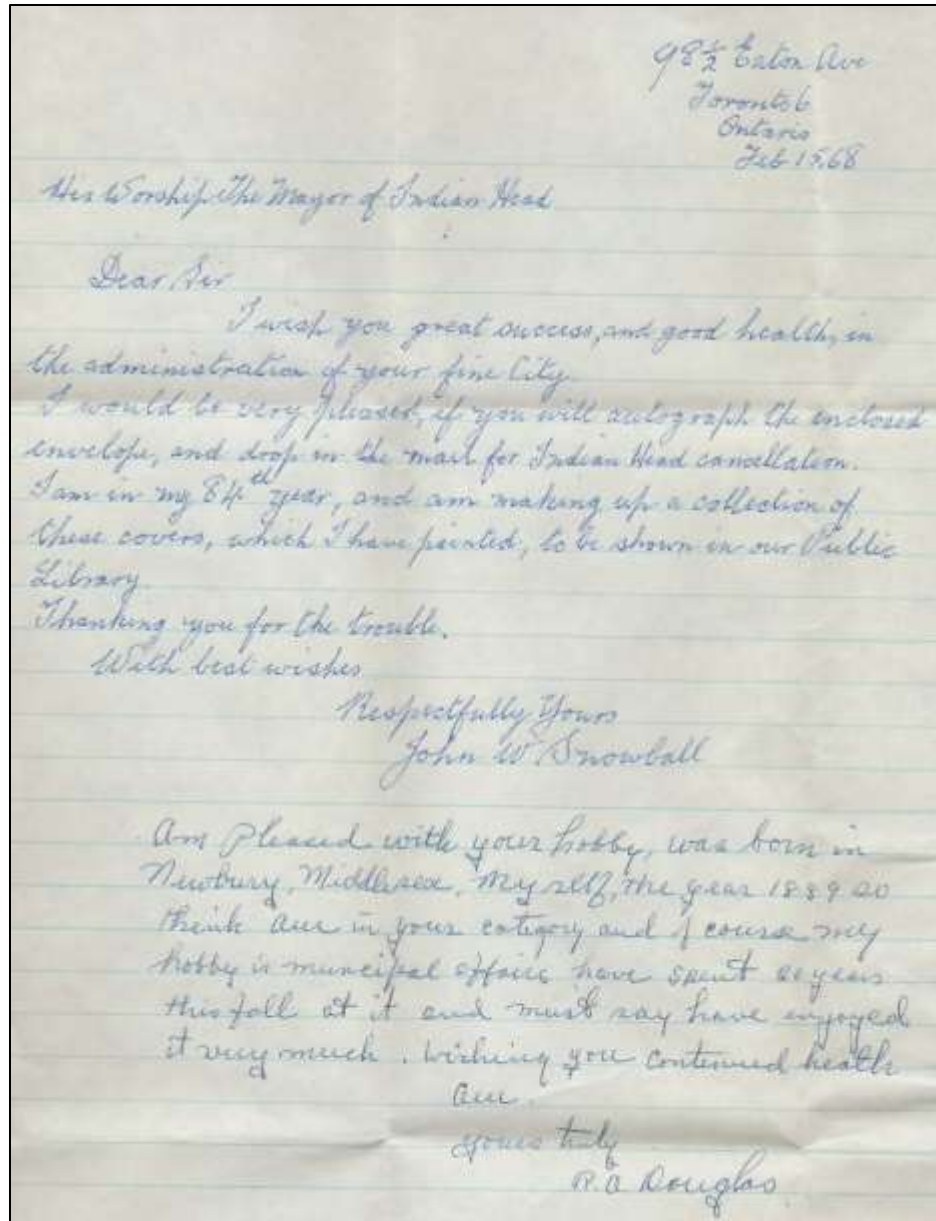 98½ Eaton Ave
Toronto 6
Ontario
Feb 15, 68
His Worship The Mayor of Indian Head
Dear Sir
I wish you great success, and good health, in
the administration of your fine City.
I would be very pleased, if you will autograph the enclosed
envelope, and drop in the mail for Indian Head cancellation.
I am in my 84th year, and am making up a collection of
these covers, which I have painted, to be shown in our Public
Library.
Thanking you for the trouble.
With best wishes
Respectfully Yours
John W Snowball
Am pleased with your hobby, was born in
Newbury, Middlesex, Myself, the year 1889 so
think am in your category and of course my
hobby is muncipal affairs have spent years
this fall at it and must say have enjoyed
it very much. Wishing you continued health
am.
yours truly
R.A Douglas